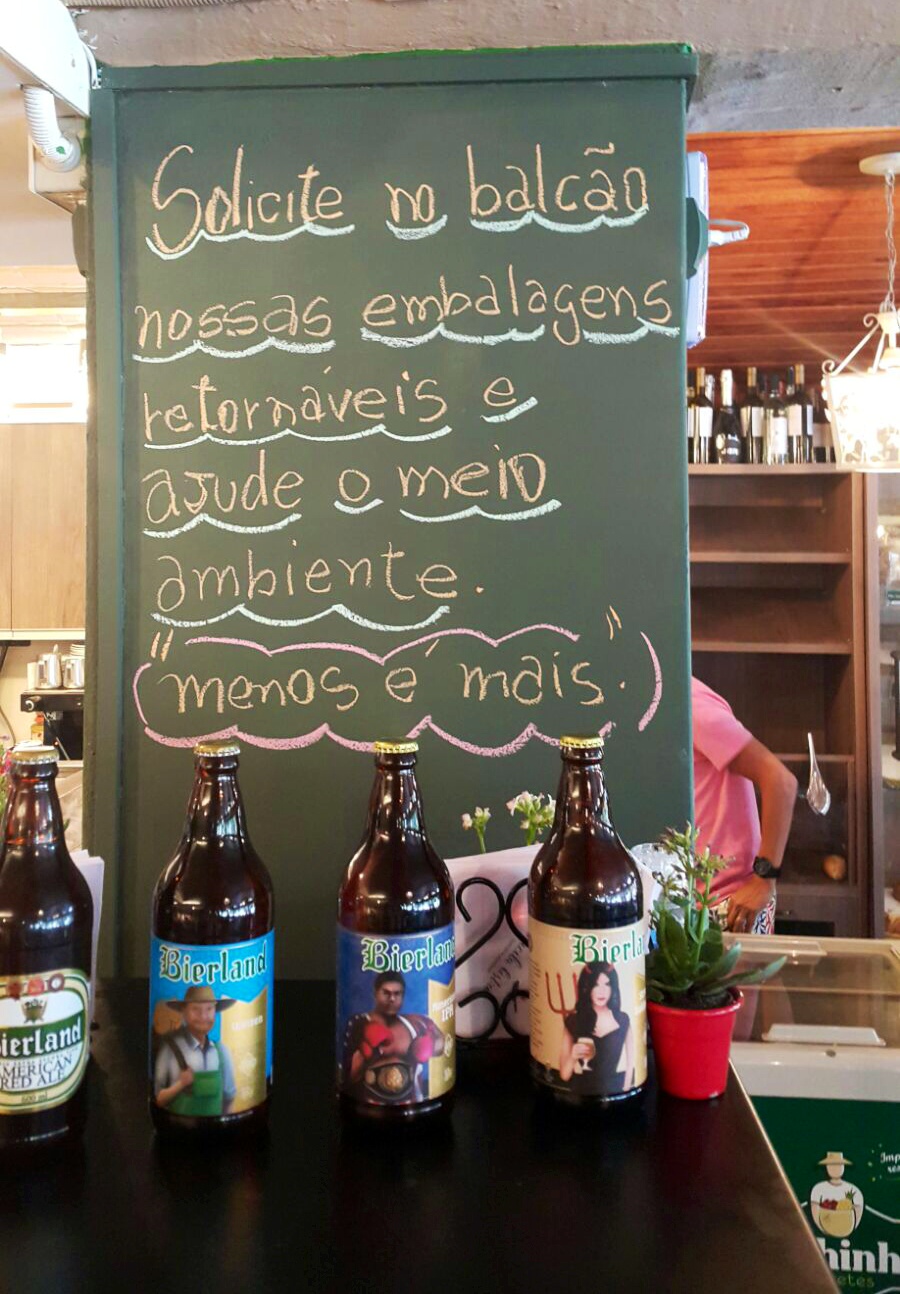 Solicite no balcão
nossas embalagens
retornáveis e
ajude o meio
ambiente.
"menos é mais."
Bierland
AMERICAN
RED ALE
600 ml
Bierland
Bierland
IPA
Bierla